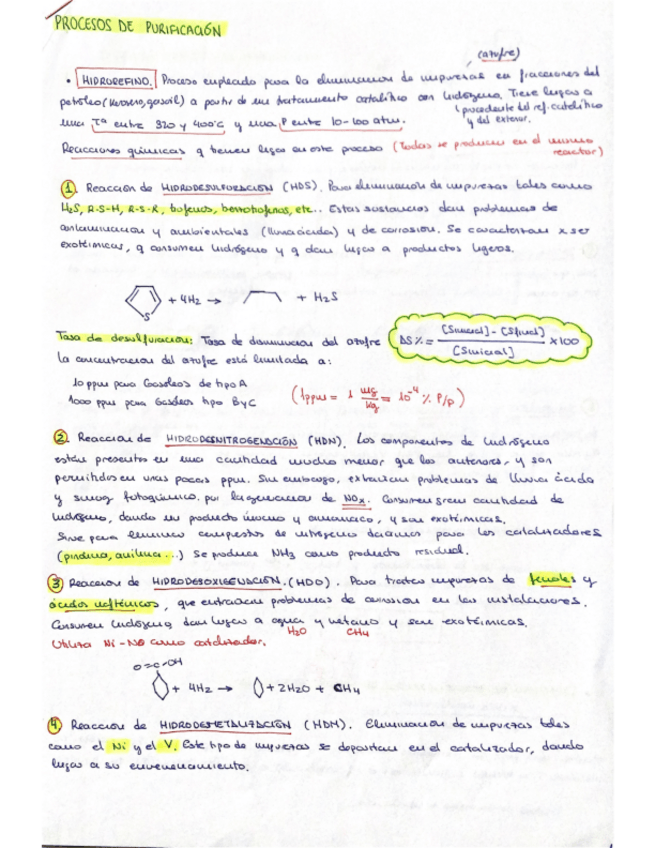 PROCESOS DE PURIFICACIÓN
(azufre)
• HIDROREFINO. Proceso empleado para la eliminación de impurezas en fracciones del
petróleo (keroseno, gasoil) a partir de su tratamiento catalítico con hidrógeno. Tiene lugar a
una Tª entre 320 y 400ºC y una P entre 10-100 atm.
(procedente del ref. catalítico
y del exterior.
Reacciones químicas q tienen lugar en este proceso (Todas se producen en el mismo
reactor)
1. Reacción de HIDRODESULFURACIÓN (HDS). Para eliminación de impurezas tales como
H₂S, R-S-H, R-S-R, tiofenos, benzotiofenos, etc.. Estas sustancias dan problemas de
contaminación y ambientales (lluvia ácida) y de corrosión. Se caracterizan x ser
exotérmicas, q consumen hidrógeno y q dan lugar a productos ligeros.
S + 4H₂ → + H₂S
Tasa de desulfuración: Tasa de disminución del azufre
ΔS% = [Sinicial] - [Sfinal] / [Sinicial] x100
la concentración del azufre está limitada a:
10 ppm para Gasóleos de tipo A
1000 ppm para Gasóleos tipo B y C
(1ppm = 1 mg/kg = 10⁻⁴ % P/P)
2. Reacción de HIDRODESNITROGENACIÓN (HDN). Los componentes de hidrógeno
están presentes en una cantidad mucho menor que los anteriores, y son
permitidos en unas pocas ppm. Sin embargo, extrañan problemas de lluvia ácida
y smog fotoquímico por la generación de NOx. Consumen gran cantidad de
hidrógeno, dando un producto ligero y amoniaco, y son exotérmicas.
Sirve para eliminar compuestos de nitrógeno dañinos para los catalizadores
(piridina, anilina...) Se produce NH₃ como producto residual.
3 Reacción de HIDRODESOXIGENACIÓN. (HDO). Para tratar impurezas de fenoles y
ácidos nafténicos, que entrañan problemas de corrosión en las instalaciones.
Consumen hidrógeno dan lugar a agua y metano y son exotérmicas.
H₂O CH₄
Utiliza Ni-Mo como catalizador.
O=C-OH
+ 4H₂ → + 2H₂O + CH₄
4. Reacción de HIDRODESMETALIZACIÓN (HDM). Eliminación de impurezas tales
como el Ni y el V. Este tipo de impurezas se depositan en el catalizador, dando
lugar a su envenenamiento.